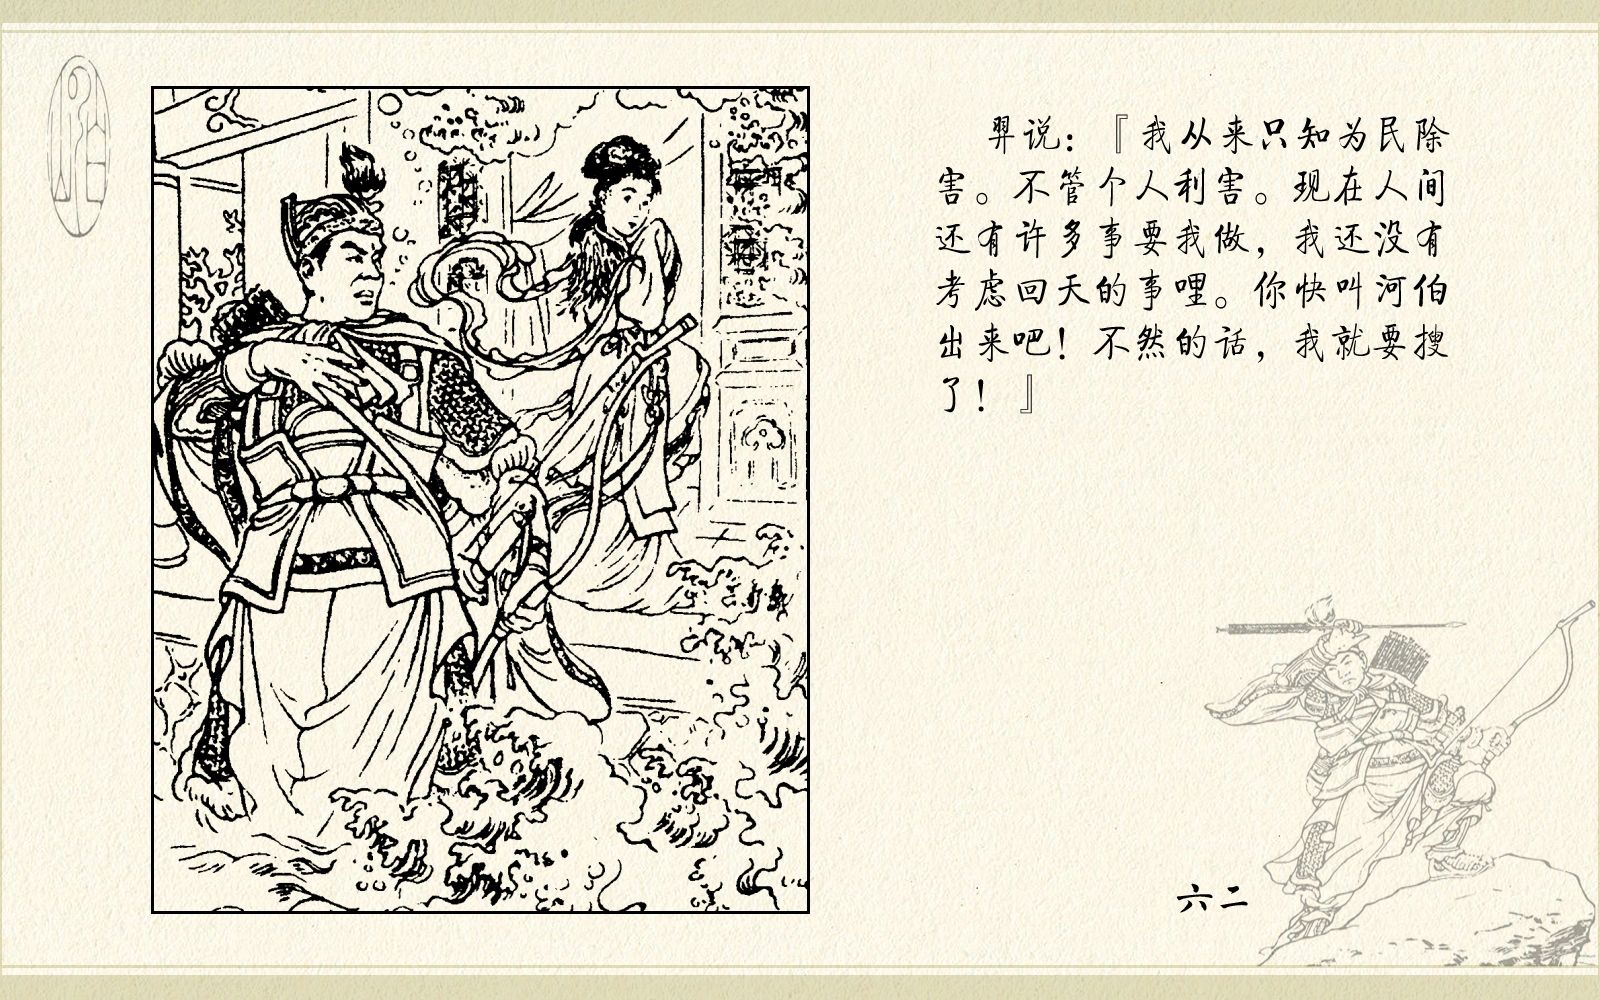 羿说：『我从来只知为民除
害。不管个人利害。现在人间
还有许多事要我做，我还没有
考虑回天的事哩。你快叫河伯
出来吧！不然的话，我就要搜
了！』
六二